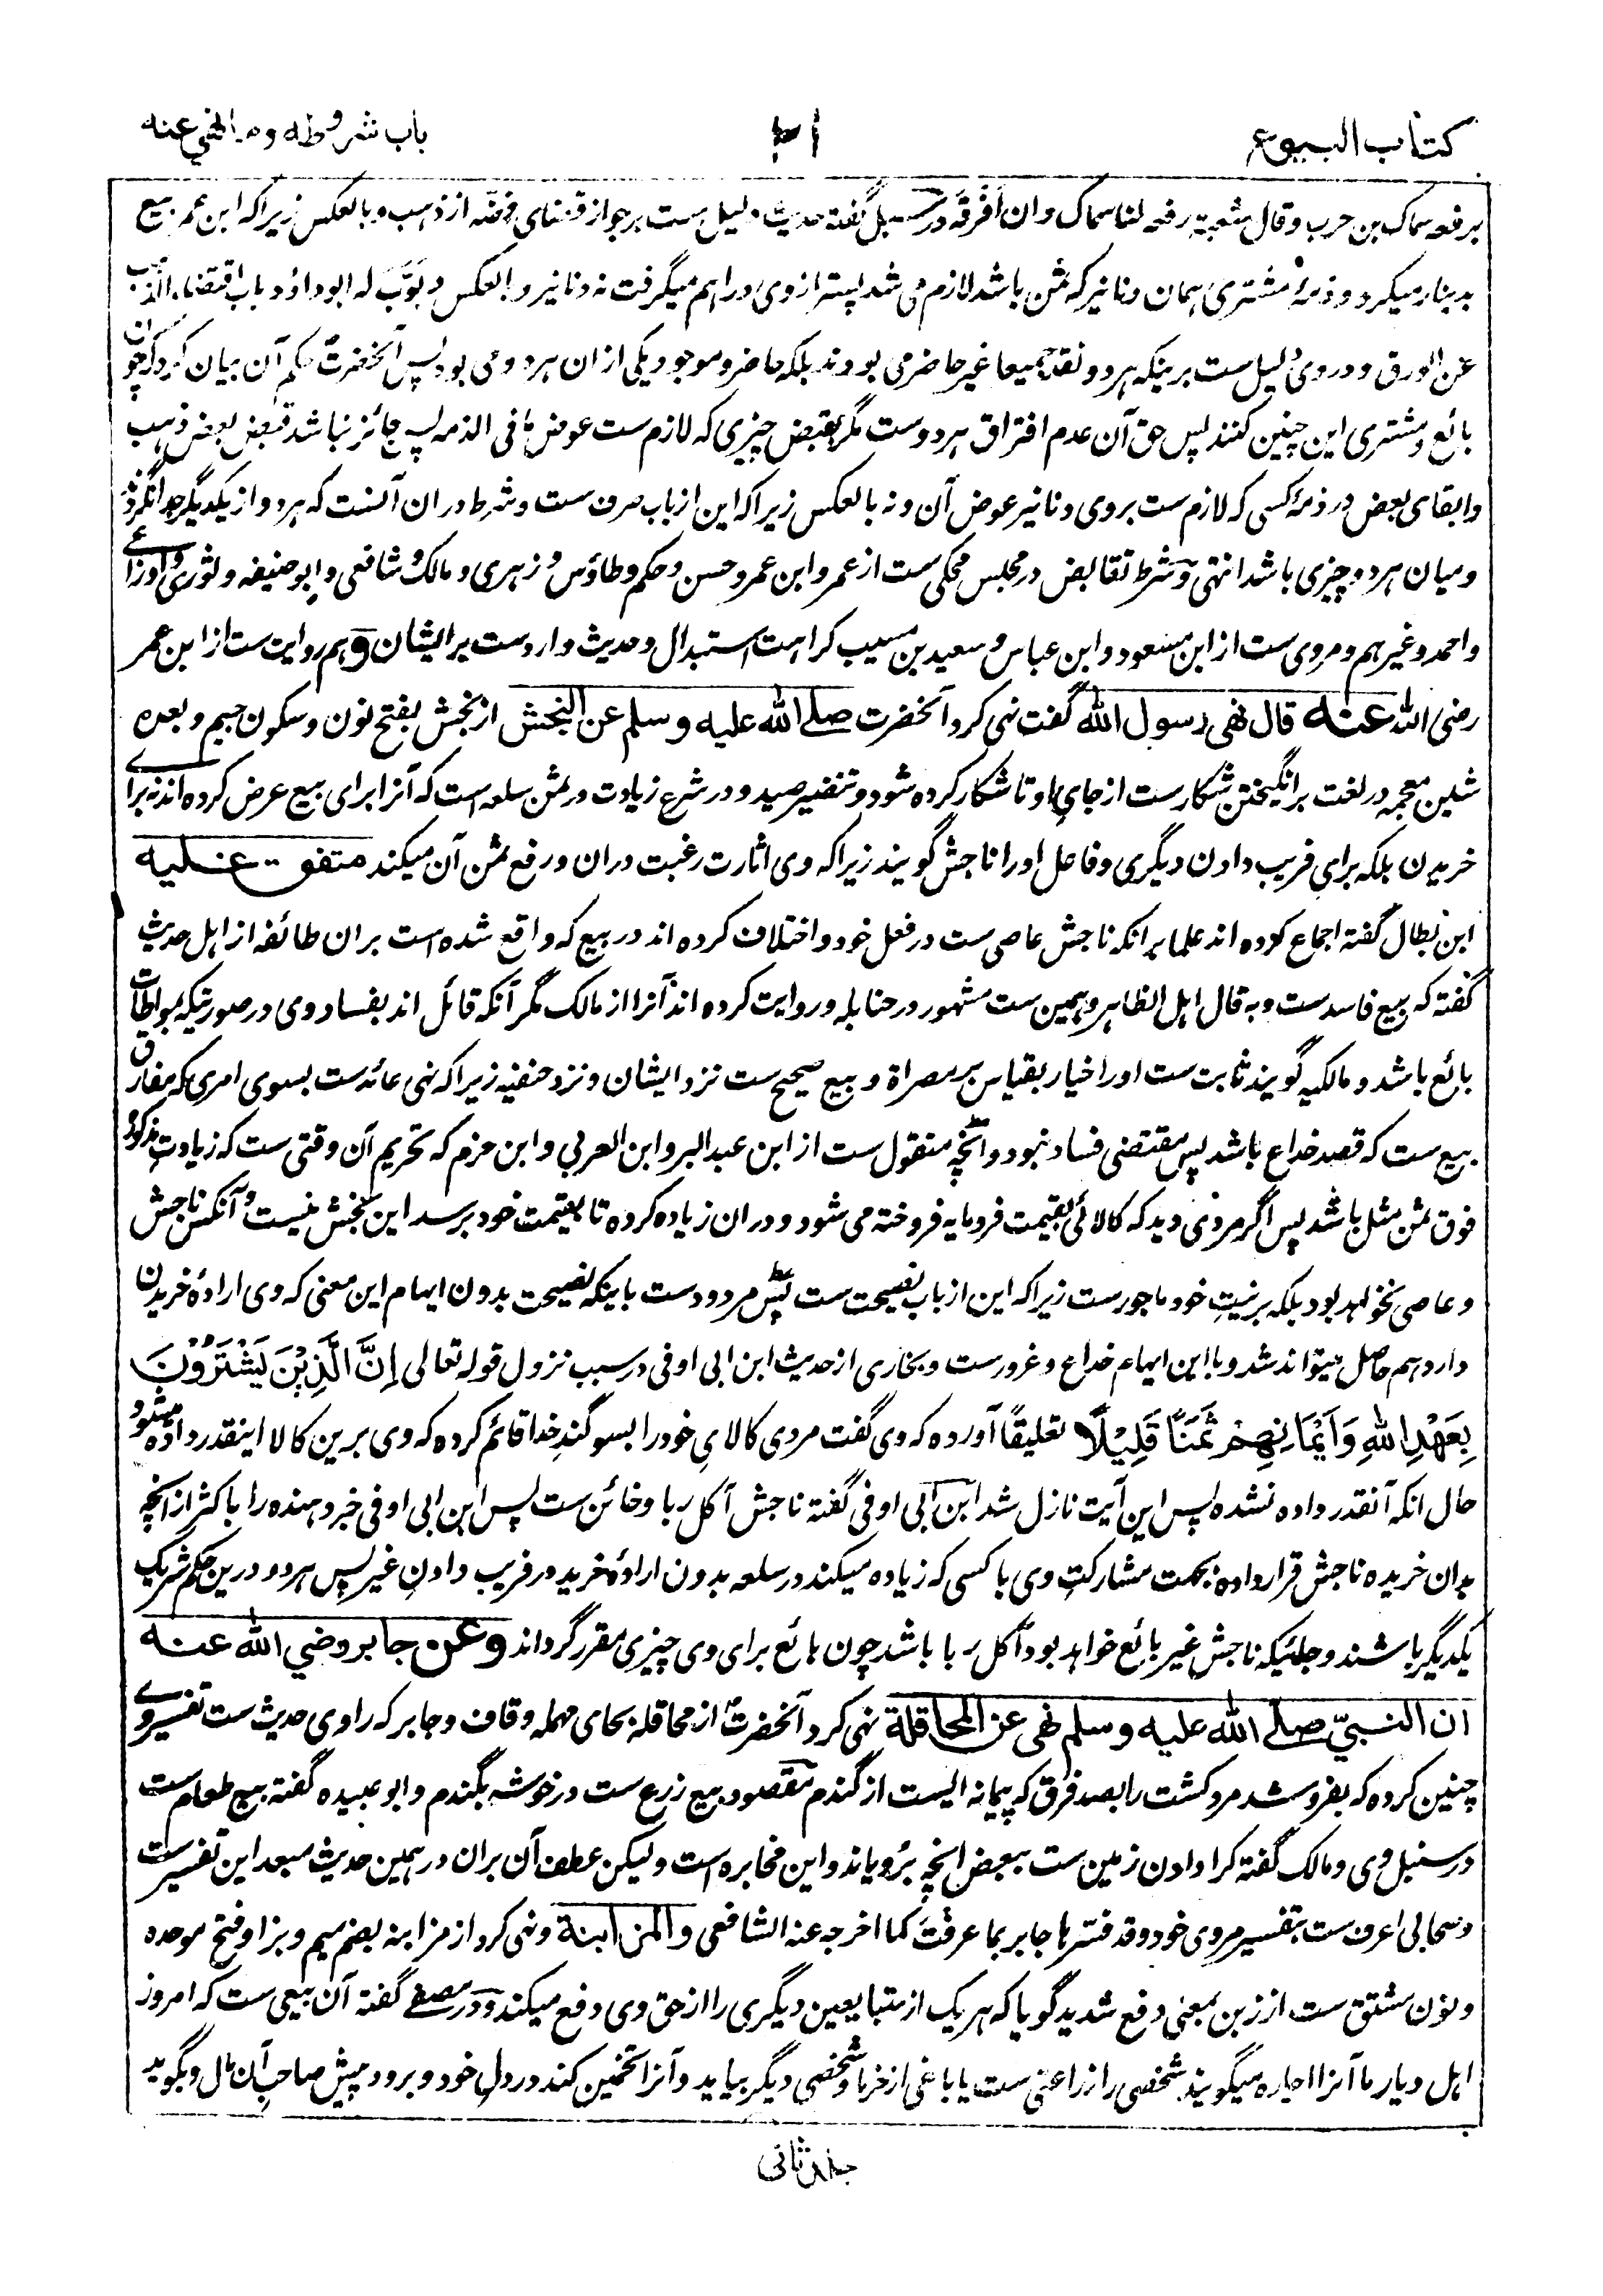 کتاب البیوع
۲۱
باب شروطه وما نهی عنه
یرفعه سماک بن حرب وقال شعبة رفعه لنا سماک وان افرقه در سبل گفته حدیث دلیل ست بر جواز قضای فضه از ذهب و بالعکس زیراکه ابن عمر بیع
بدینار میکرد و ذمهٔ مشتری همان دنانیر که ثمن باشد لازم می شد پستر ازوی دراهم میگرفت نه دنانیر و بالعکس و بوّب له ابوداؤد باب اقتضاء الذهب
عن الورق و دروی دلیل ست برینکه هردو نقد جمیعا غیر حاضر می بودند بلکه حاضر و موجود یکی ازان هردو می بود پس آنحضرت حکم آن بیان کرد که چون
بائع و مشتری این چنین کنند پس حق آن عدم افتراق هردوست مگر بقبض چیزی که لازم ست عوض ما فی الذمه پس جائز نباشد قبض بعض ذهب
وابقای بعض در ذمهٔ کسی که لازم ست بروی دنانیر عوض آن و نه بالعکس زیراکه این از باب صرف ست و شرط دران آنست که هردو از یکدیگر جدا نگردند
و میان هردو چیزی باشد انتهی و شرط تقابض در مجلس محکی ست از عمر و ابن عمر و حسن و حکم و طاؤس و زهری و مالک و شافعی و ابو حنیفه و ثوری و اوزاعے
و احمد و غیرهم و مروی ست از ابن مسعود و ابن عباس و سعید بن مسیب کراهت استبدال و حدیث واردست بر ایشان وهم روایت ست از ابن عمر
رضی الله عنه قال نهی رسول الله گفت نهی کرد آنحضرت صلے الله علیه وسلم عن النجش از نجش بفتح نون و سکون جیم و بعده
شین معجمه در لغت برانگیختن شکارست از جای او تا شکار کرده شود و تنفیر صید و در شرع زیادت در ثمن سلعه است که آنرا برای بیع عرض کرده اند نه برائے
خریدن بلکه برای فریب دادن دیگری و فاعل اورا ناجش گویند زیراکه وی اثارت رغبت دران و رفع ثمن آن میکند متفق علیه
ابن بطال گفته اجماع کرده اند علما برانکه ناجش عاصی ست در فعل خود و اختلاف کرده اند در بیع که واقع شده است بران طائفه از اهل حدیث
گفته که بیع فاسدست وبه قال اهل الظاهر و همین ست مشهور در حنابله و روایت کرده اند آنرا از مالک مگر آنکه قائل اند بفساد وی در صورتیکه بمواطات
بائع باشد و مالکیه گویند ثابت ست اورا خیار بقیاس بر مصراة و بیع صحیح ست نزد ایشان و نزد حنفیه زیراکه نهی عائدست بسوی امری که مفارق
بیع ست که قصد خداع باشد پس مقتضی فساد نبود و آنچه منقول ست از ابن عبد البر و ابن العربی و ابن حزم که تحریم آن وقتی ست که زیادت مذکور
فوق ثمن مثل باشد پس اگر مردی دید که کالائی بقیمت فرومایه فروخته می شود و دران زیاده کرده تا بقیمت خود برسد این نجش نیست و آنکس ناجش
و عاصی نخواهد بود بلکه بر نیت خود ماجورست زیراکه این از باب نصیحت ست پس مردودست باینکه نصیحت بدون ایهام این معنی که وی ارادهٔ خریدن
دارد هم حاصل میتواند شد و با این ایهام خداع و غرورست و بخاری از حدیث ابن ابی اوفی در سبب نزول قوله تعالی اِنَّ الَّذِیْنَ یَشْتَرُوْنَ
بِعَهْدِ اللهِ وَاَیْمَانِهِمْ ثَمَنًا قَلِیْلًا تعلیقًا آورده که وی گفت مردی کالای خود را بسوگند خدا قائم کرده که وی برین کالا اینقدر داده میشود
حال انکه آنقدر داده نشده پس این آیت نازل شد ابن ابی اوفی گفته ناجش آکل ربا و خائن ست پس ابن ابی اوفی خبر دهنده را باکثر از آنچه
بدان خریده ناجش قرار داده بجهت مشارکت وی با کسی که زیاده میکند در سلعه بدون ارادهٔ خرید در فریب دادن غیر پس هردو درین حکم شریک
یکدیگر باشند و جائیکه ناجش غیر بائع خواهد بود آکل ربا باشد چون بائع برای وی چیزی مقرر گرداند وعن جابر رضی الله عنه
ان النبیّ صلے الله علیه وسلم نهی عن المحاقلة نهی کرد آنحضرت از محاقله بحای مهمله و قاف و جابر که راوی حدیث ست تفسیر وے
چنین کرده که بفروشد مرد کشت را بصد فرق که پیمانه ایست از گندم مقصود بیع زرع ست در خوشه بگندم و ابو عبیده گفته بیع طعام ست
در سنبل وی و مالک گفته کرا دادن زمین ست ببعض انچه برویاند و این مخابره است و لیکن عطف آن بران در همین حدیث مبعد این تفسیرست
و صحابی اعرف ست بتفسیر مروی خود و قد فسّرها جابر بما عرفت کما اخرجه عنه الشافعی والمزابنة و نهی کرد از مزابنه بضم میم و بزا و فتح موحده
و نون مشتق ست از زبن بمعنی دفع شدید گویا که هر یک از متبایعین دیگری را از حق وی دفع میکند و در مصفے گفته آن بیعی ست که امروز
اهل دیار ما آنرا اجاره میگویند شخصی را زراعتی ست یا باغی از خرما و شخصی دیگر بیاید و آنرا تخمین کند در دل خود و برود پیش صاحب آن مال و بگوید
جلد ثانی